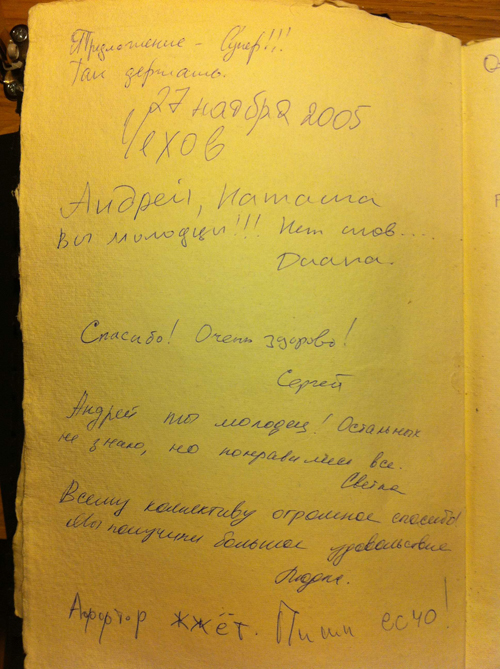 Предложение - Супер!!!
Так держать.
27 ноября 2005
Чехов
Андрей, Наташа
Вы молодцы!!! Нет слов....
Диана.
Спасибо! Очень здорово!
Сергей
Андрей ты молодец! Остальных
не знаю, но понравились все.
Света
Всему коллективу огромное спасибо!
Мы получили большое удовольствие
Аффтор жжёт. Пиши есчо!